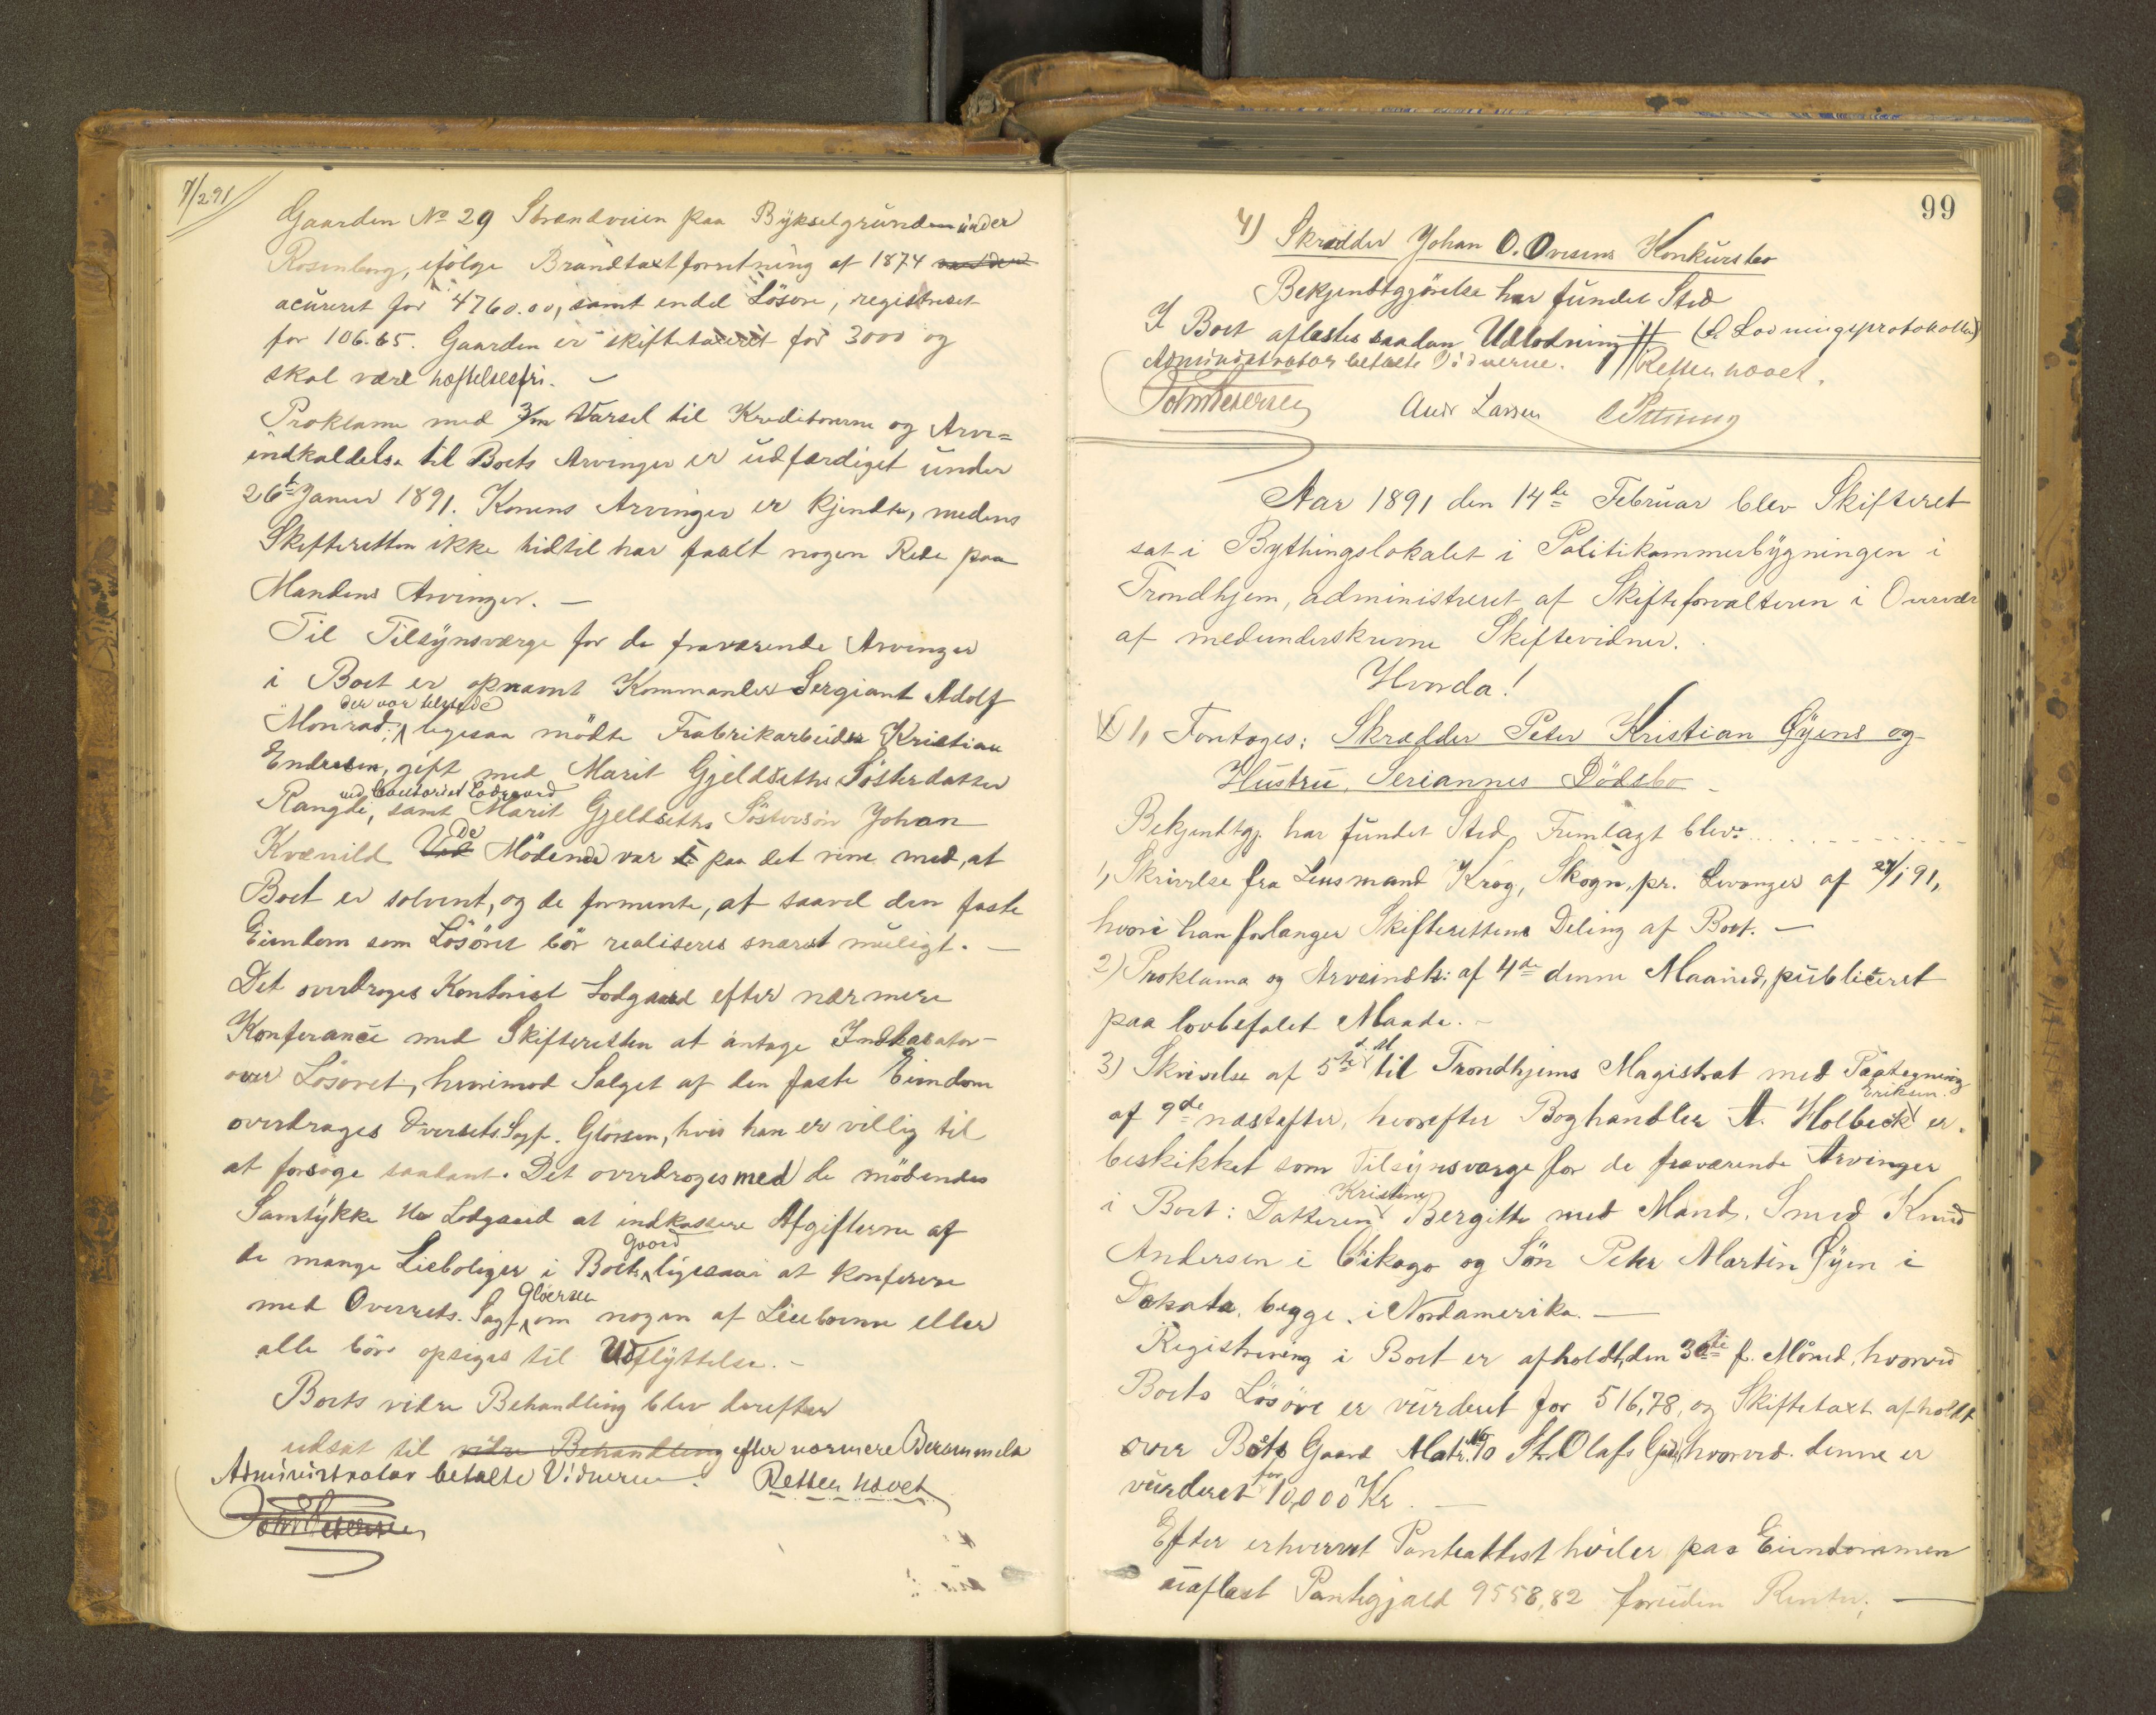 7/2 91
Gaarden No 29 Strandveien paa Bykselgrunden under
Rosenborg, ifølge Brandtaxtforretning af 1874
acureret for 4760.00, samt endel Lösöre, registreret
for 106.65. Gaarden er skiftetaxeret for 3000 og
skal være hæftelsesfri. —
Proklama med 3/m Varsel til Kreditorerne og Arve=
indkaldelse til Boets Arvinger er udfærdiget under
26t Januar 1891. Konens Arvinger er kjendte, medens
Skifteretten ikke hidtil har faaet nogen Rede paa
Mandens Arvinger. —
Til Tilsynsværge for de fraværende Arvinger
i Boet er opnævnt Kommander Sergiant Adolf
der var tilstede
Monrad; ligesaa mödte Fabrikarbeider Kristian
Endresen, gift med Marit Gjeldseths Sösterdatter
ved Contorist Lodgaard
Rangdi, samt Marit Gjeldseths Söstersön Johan
Kvænild Ved De Mödende var paa det rene med, at
Boet er solvent, og de formente, at saavel den faste
Eiendom som Lösöret bör realiseres snarest muligt. —
Det overdroges Kontorist Lodgaard efter nærmere
Konferance med Skifteretten at antage Indkasator
over Lösöret, hvorimod Salget af den faste Eiendom
overdrages Overrets. Sagf. Gloersen, hvis han er villig til
at forsöge saadant. Det overdroges med de mödendes
Samtykke Hr Lodgaard at indkassere Afgifterne af
de mange Lieboliger i Boets Gaard ligesaa at konferere
med Overrets. Sagf. Gloersen om nogen af Leieboerne eller
alle bör opsiges til Udflyttelse. —
Boets videre Behandling blev derefter
udsat til videre Behandling efter nærmere Berammelse
Administrator betalte Vidnerne. Retten hævet
99
4) Skrædder Johan O. Ovesens Konkursbo
Bekjendtgjörelse har fundet Sted
I Boet aflæstes saadan Udlodning // (Lodningsprotokollen)
Administrator betalte Vidnerne. // Retten hævet.
Andr Larsen
Aar 1891 den 14de Februar blev Skifteret
sat i Bythingslokalet i Politikammerbygningen i
Trondhjem, administreret af Skifteforvalteren i Overvær
af medunderskrevne Skiftevidner.
Hvorda!
1, Foretoges: Skrædder Peter Kristian Öyens og
Hustru, Seriannes Dödsbo
Bekjendtgj. har fundet Sted. Fremlagt blev:
1, Skrivelse fra Lensmand Krog, Skogn, pr. Levanger af 27/1 91,
hvori han forlanger Skifterettens Deling af Boet. —
2) Proklama og Arveindk: af 4de denne Maaned, publiceret
paa lovbefalet Maade. —
3) Skrivelse af 5te d. M til Trondhjems Magistrat med Paategning
af 9de næstefter, hvorefter Boghandler A. Holbæck Eriksen er
beskikket som Tilsynsværge for de fraværende Arvinger
i Boet: Datteren Kristine Bergitte med Mand, Smed Knud
Andersen i Chikago og Sön Peter Martin Öyen i
Dakota, begge i Nordamerika. —
Registrering i Boet er afholdt, den 30te f. Måned, hvorved
Boets Lösöre er vurderet for 516,78, og Skiftetaxt afholdt
over Boets Gaard Matr. No 10 St. Olafs Gade, hvorved denne er
vurderet for 10,000 Kr. —
Efter erhvervet Panteattest hviler paa Eiendommen
uaflæst Pantegjæld 9558,82 foruden Renter; —